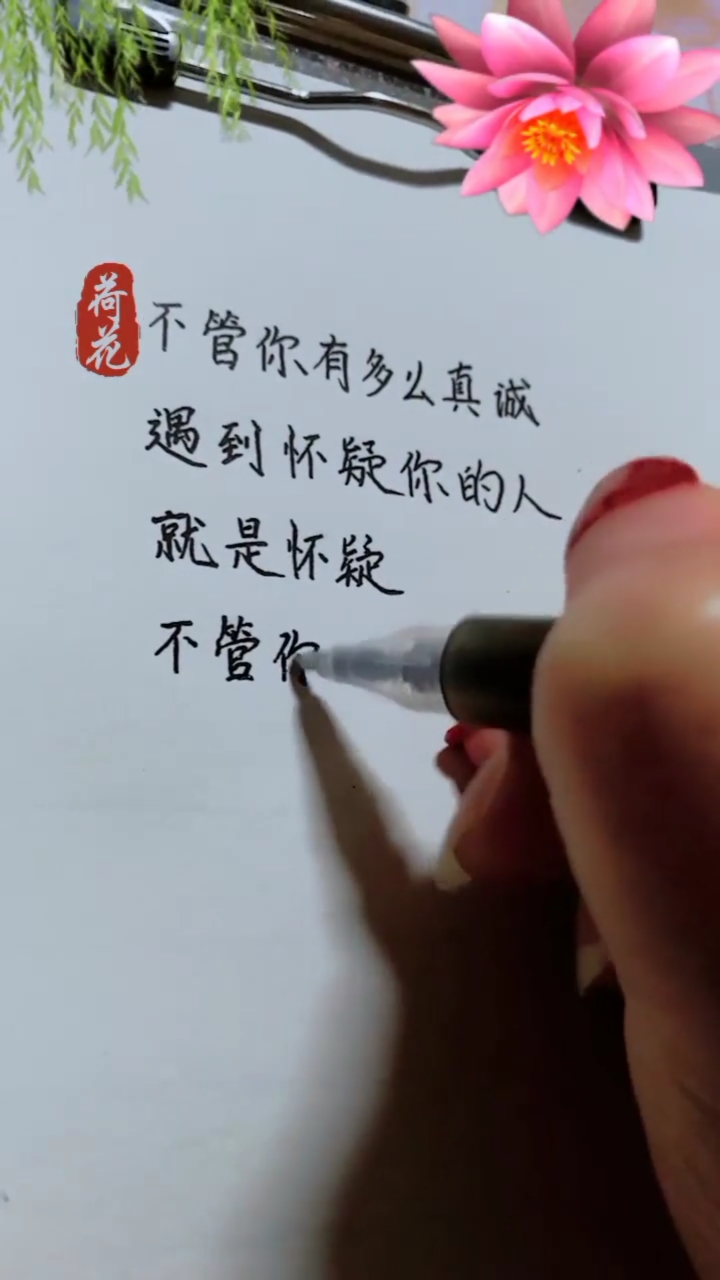 荷花
不管你有多么真诚
遇到怀疑你的人
就是怀疑
不管你